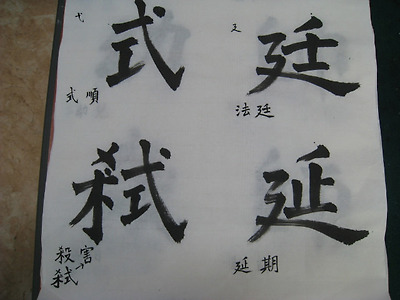 廴
廷
法廷
延
延期
弋
式
式順
弑
殺害
弑